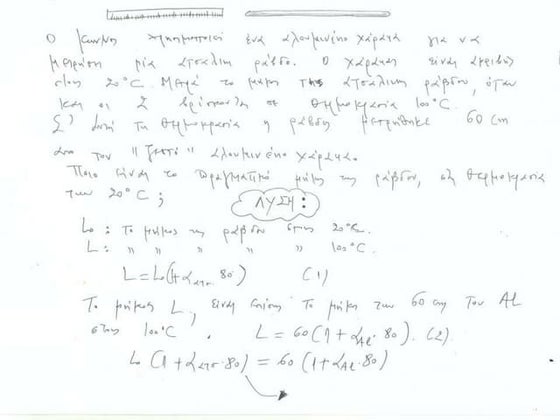 Ο Γιάννης χρησιμοποιεί ένα αλουμινένιο χάρακα για να
μετρήσει μία ατσάλινη ράβδο. Ο χάρακας είναι ακριβής
στους 20°C. Μετρά το μήκος της ατσάλινης ράβδου, όταν
και οι 2 βρίσκονται σε θερμοκρασία 100°C.
Σ' αυτή τη θερμοκρασία η ράβδος μετρήθηκε 60 cm
από τον "ζεστό" αλουμινένιο χάρακα.
Ποιο είναι το πραγματικό μήκος της ράβδου, στη θερμοκρασία
των 20°C;
ΛΥΣΗ:
L₀: Το μήκος της ράβδου στους 20°C.
L: " " " " " 100°C.
L=L₀(1+α_ατσ·80) (1)
Το μήκος L, είναι επίσης το μήκος των 60 cm του Al
στους 100°C. L = 60(1+α_Al·80). (2)
L₀(1+α_ατσ·80) = 60(1+α_Al·80)